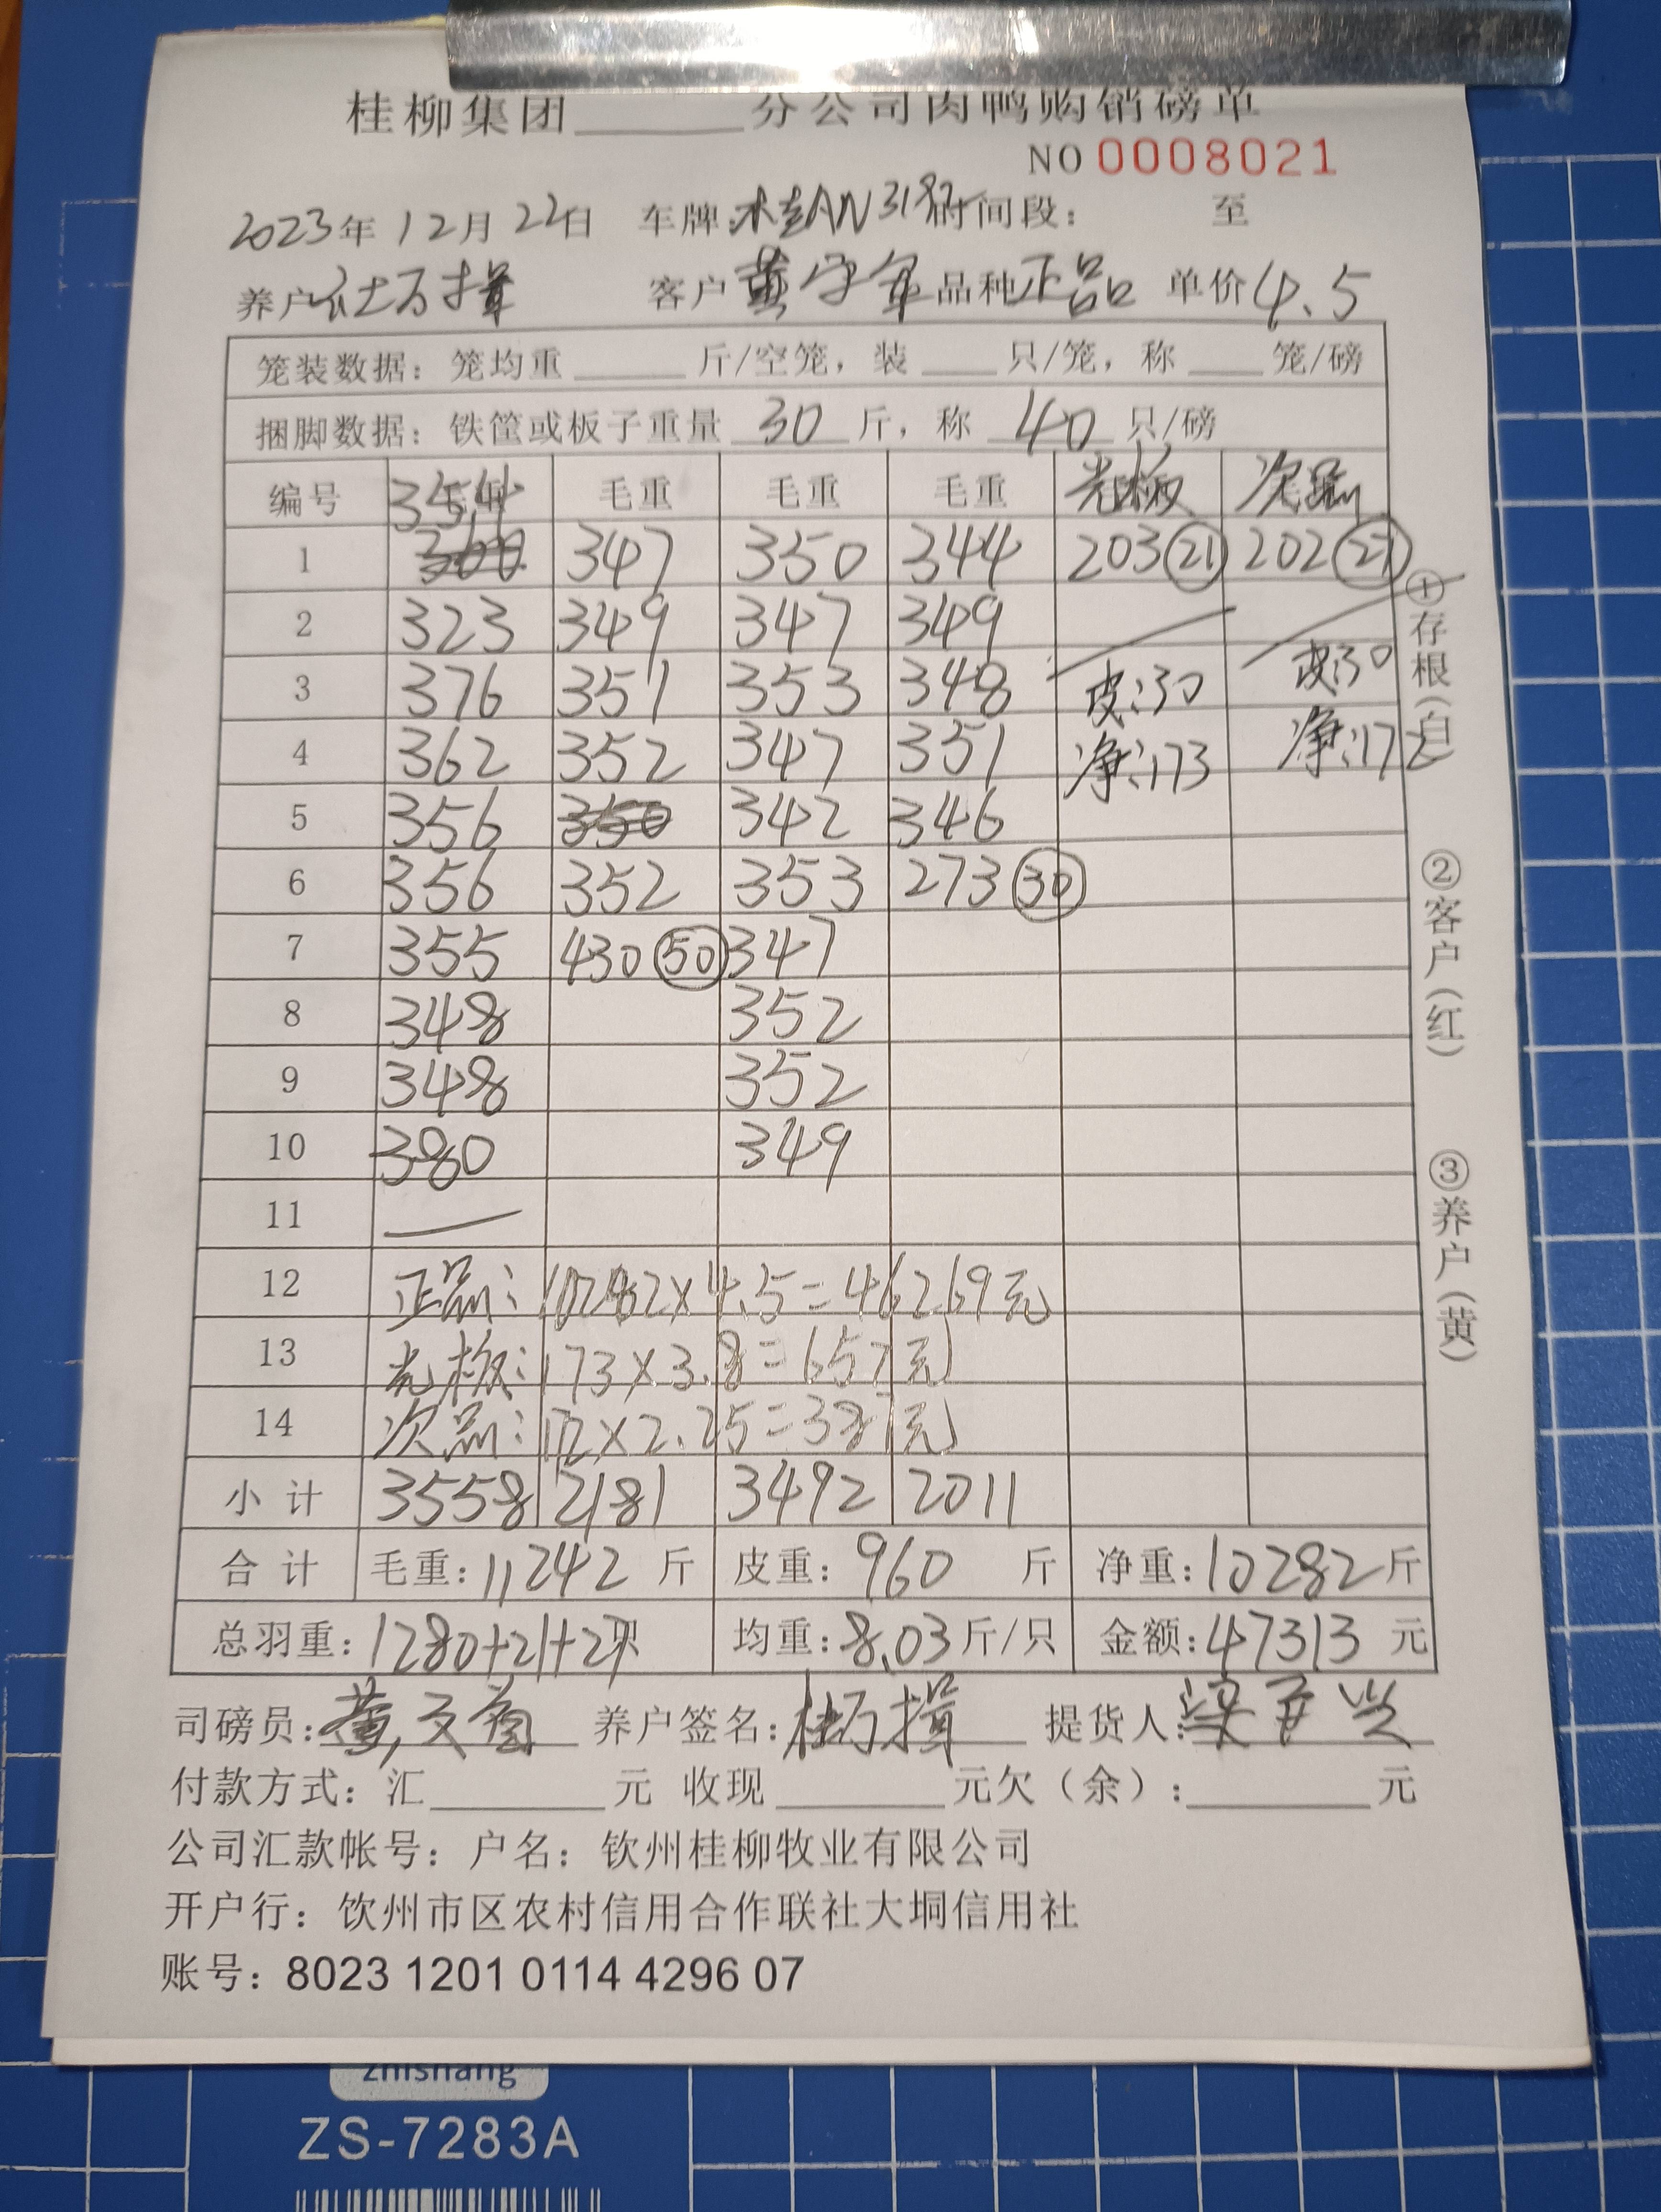 桂柳集团______分公司肉鸭购销磅单
NO 0008021
2023年12月22日 车牌:桂AN3187 时间段: 至
养户 杜万揖 客户 黄守年 品种 正品 单价 4.5
笼装数据：笼均重______斤/空笼，装____只/笼，称____笼/磅
捆脚数据：铁筐或板子重量 30 斤，称 40 只/磅
编号 354 毛重 毛重 毛重 光板 次品
1 360 347 350 344 203 21 202 27
2 323 349 347 349
3 376 351 353 348 皮:30 皮30
4 362 352 347 351 净:173 净:172
5 356 350 342 346
6 356 352 353 273 30
7 355 430 50 347
8 348 352
9 348 352
10 380 349
11 —
12 正品:10282×4.5=46269元
13 光板:173×3.8=657元
14 次品:172×2.25=387元
小计 3558 2181 3492 2011
合计 毛重:11242 斤 皮重:960 斤 净重:10282斤
总羽重:1280+21+27只 均重:8.03斤/只 金额:47313 元
司磅员: 黄 养户签名:杜万揖 提货人:
付款方式：汇______元 收现______元欠（余）:______元
公司汇款帐号：户名：钦州桂柳牧业有限公司
开户行：饮州市区农村信用合作联社大垌信用社
账号：8023 1201 0114 4296 07
①存根（白）
②客户（红）
③养户（黄）
zhishang
ZS-7283A